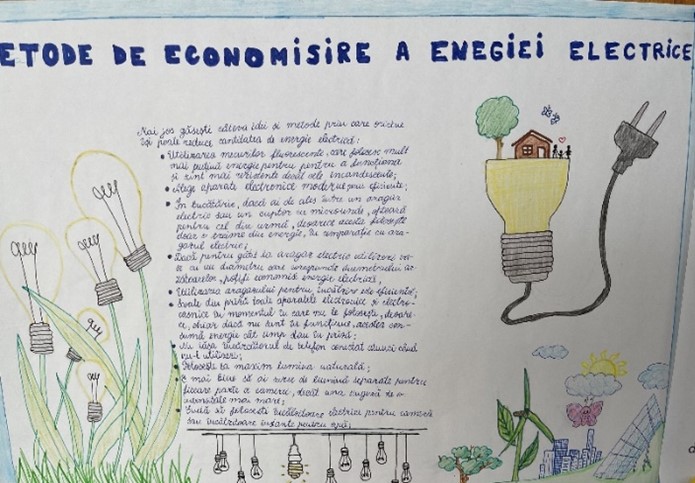 ETODE DE ECONOMISIRE A ENEGIEI ELECTRICE
Mai jos găsești câteva idei și metode prin care oricine
își poate reduce cantitatea de energie electrică:
• Utilizarea becurilor fluorescente, care folosesc mult
mai puțină energie pentru pentru a funcționa
și sunt mai rezistente decât cele incandescente;
• Alege aparate electronice moderne eficiente;
• În bucătărie, dacă ai de ales între un aragaz
electric sau un cuptor cu microunde, optează
pentru cel din urmă, deoarece acesta folosește
doar o treime din energie, în comparație cu ara-
gazul electric;
• Dacă pentru gătit la aragaz electric utilizezi va-
se cu un diametru care corespunde diametrului ar-
zătoarelor, poți economisi energie electrică;
• Utilizarea aragazului pentru încălzire este eficientă;
• Scoate din priză toate aparatele electronice și electro-
casnice în momentul în care nu le folosești, deoare-
ce, chiar dacă nu sunt în funcțiune, acestea con-
sumă energie cât timp stau în priză;
• Nu lăsa încărcătorul de telefon conectat atunci când
nu-l utilizezi;
• Folosește la maxim lumina naturală;
• E mai bine să ai surse de lumină separate pentru
fiecare parte a camerei, decât una singură de o
intensitate mai mare;
• Evită să folosești încălzitoare electrice pentru cameră
sau încălzitoare instante pentru apă;